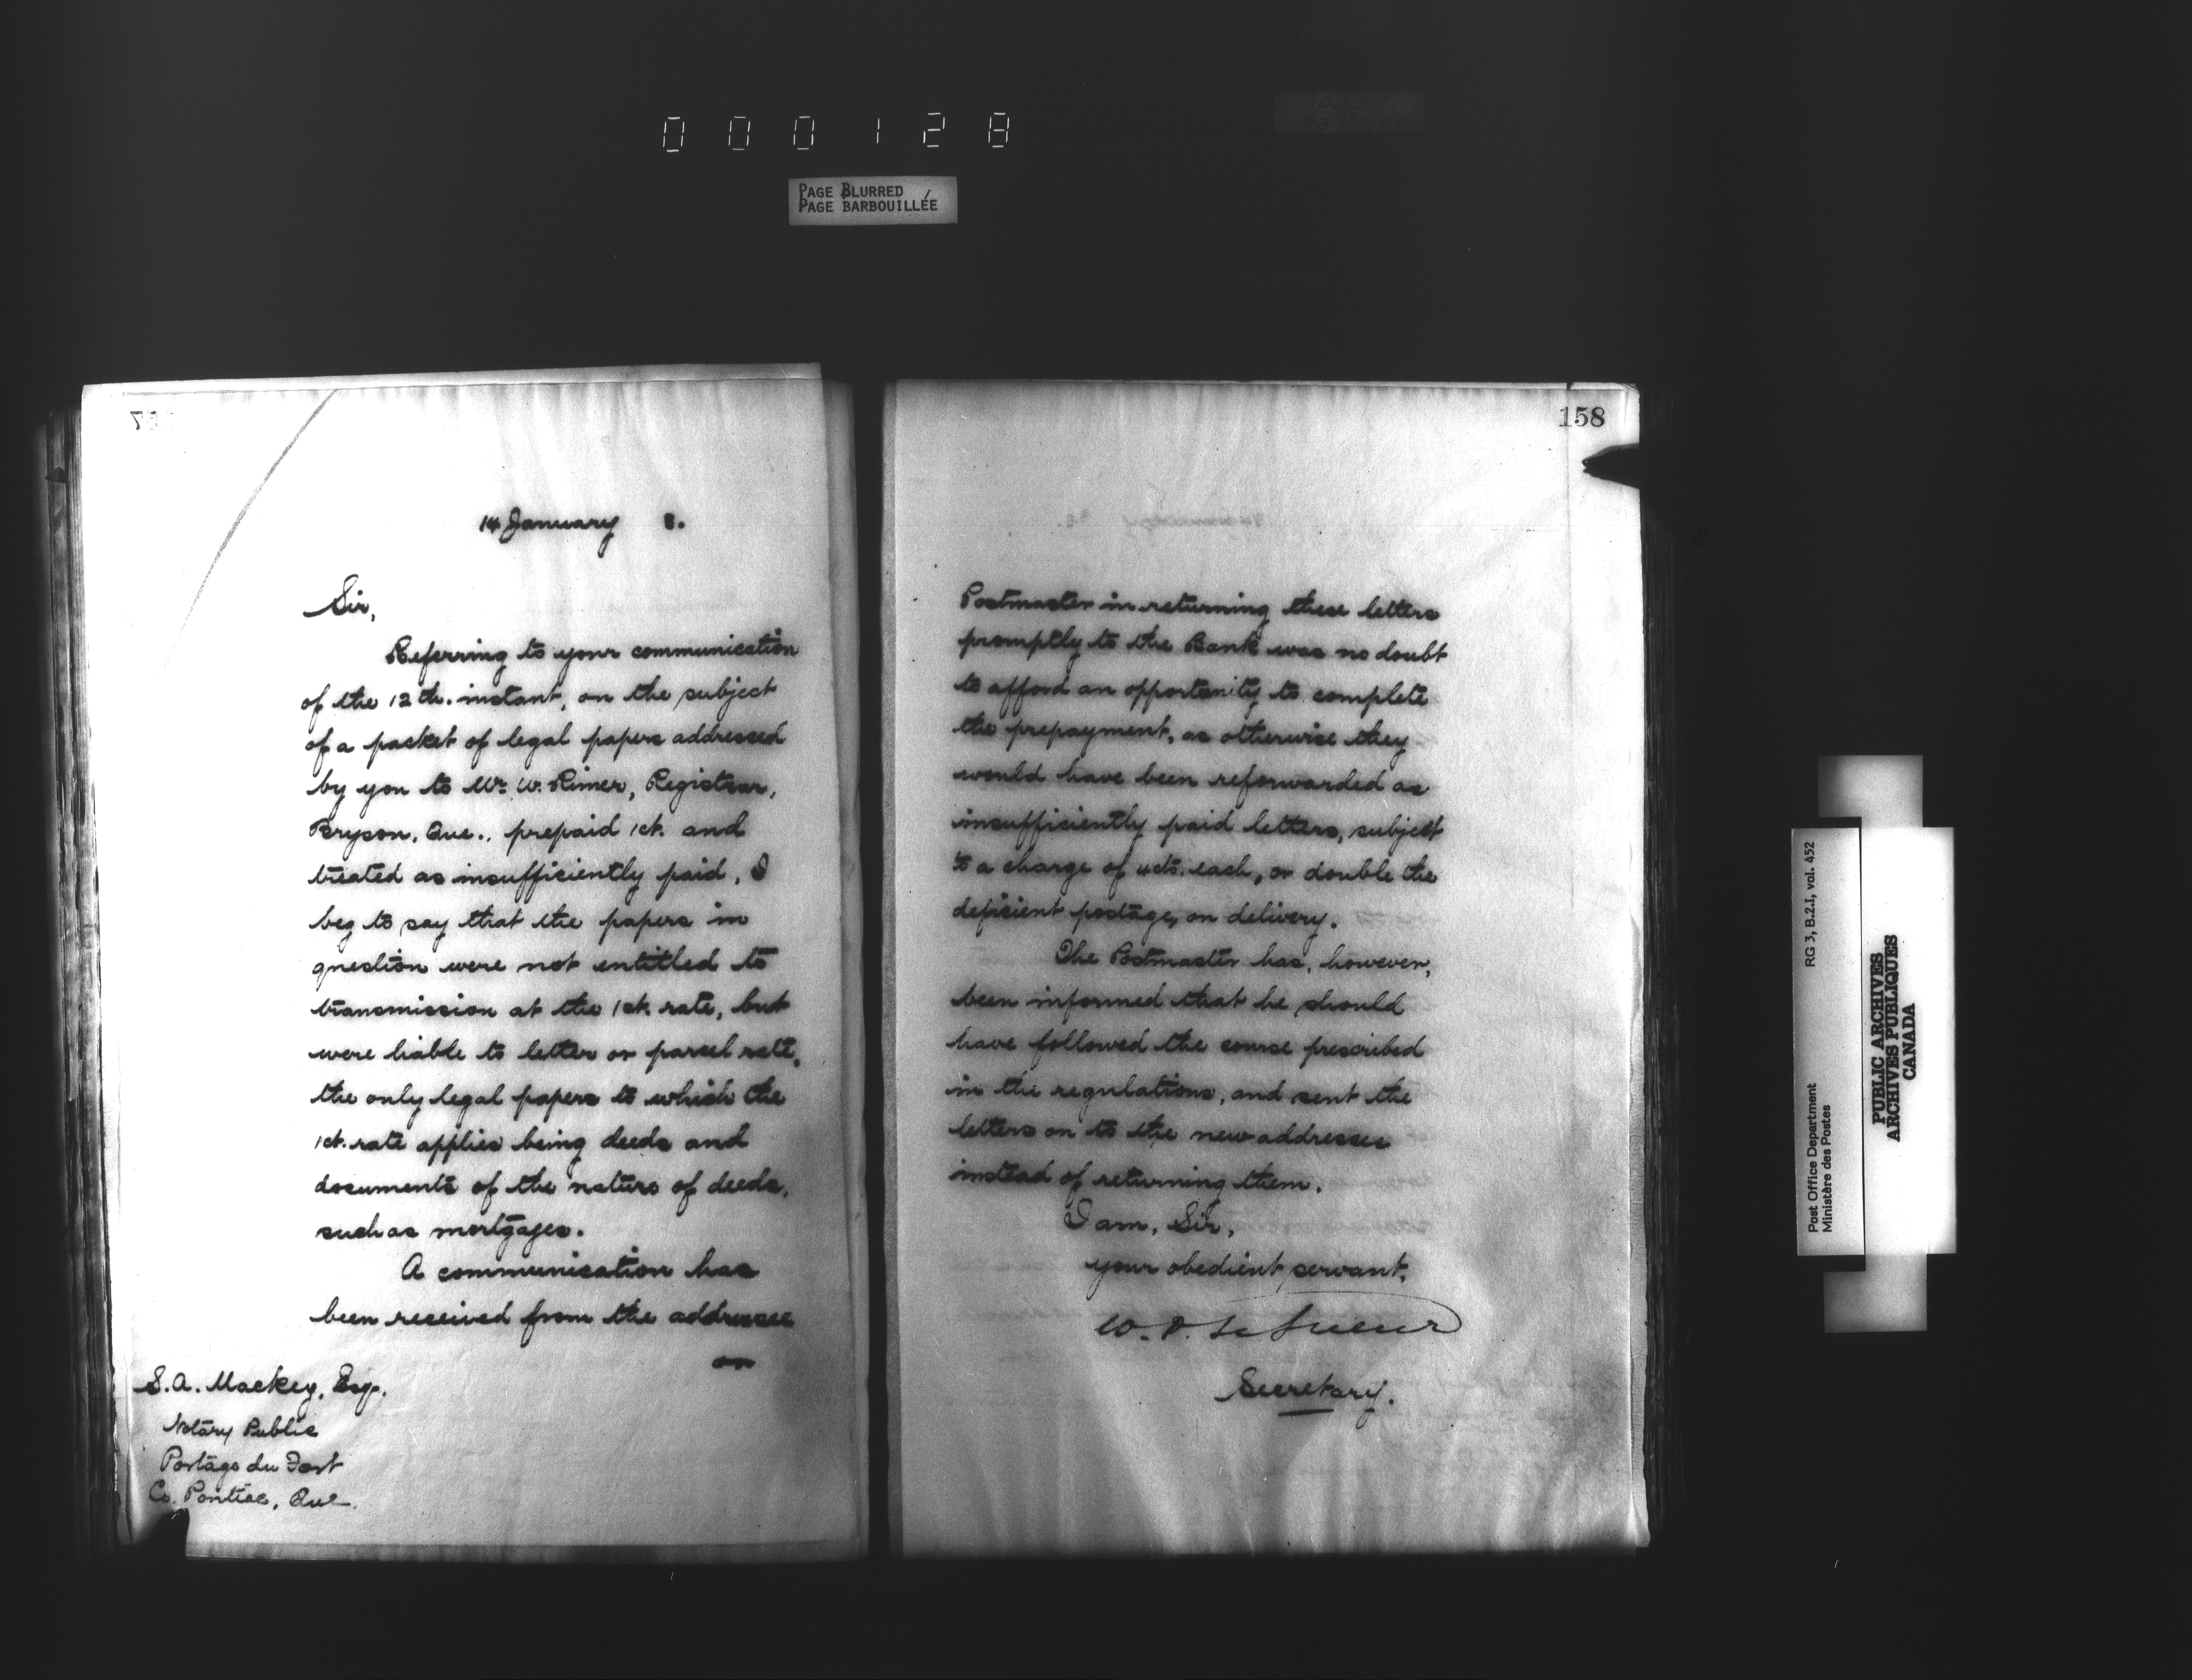 000128
PAGE BLURRED
PAGE BARBOUILLÉE
14 January 8.
Sir,
Referring to your communication
of the 12th. instant, on the subject
of a packet of legal papers addressed
by you to Mr. W. Rimer, Registrar,
Bryson, Que., prepaid 1ct. and
treated as insufficiently paid, I
beg to say that the papers in
question were not entitled to
transmission at the 1ct. rate, but
were liable to letter or parcel rate,
the only legal papers to which the
1ct. rate applies being deeds and
documents of the nature of deeds,
such as mortgages.
A communication has
been received from the addressee
on
S.A. Mackey, Esq.
Notary Public
Portage du Fort
Co. Pontiac, Que.
158
Postmaster in returning these letters
promptly to the Bank was no doubt
to afford an opportunity to complete
the prepayment, as otherwise they
would have been reforwarded as
insufficiently paid letters, subject
to a charge of 4cts. each, or double the
deficient postage, on delivery.
The Postmaster has, however,
been informed that he should
have followed the course prescribed
in the regulations, and sent the
letters on to the new addresses
instead of returning them.
I am, Sir,
your obedient servant,
W. D. LeSueur
Secretary.
Post Office Department
Ministère des Postes
RG 3, B.2.I, vol. 452
PUBLIC ARCHIVES
ARCHIVES PUBLIQUES
CANADA